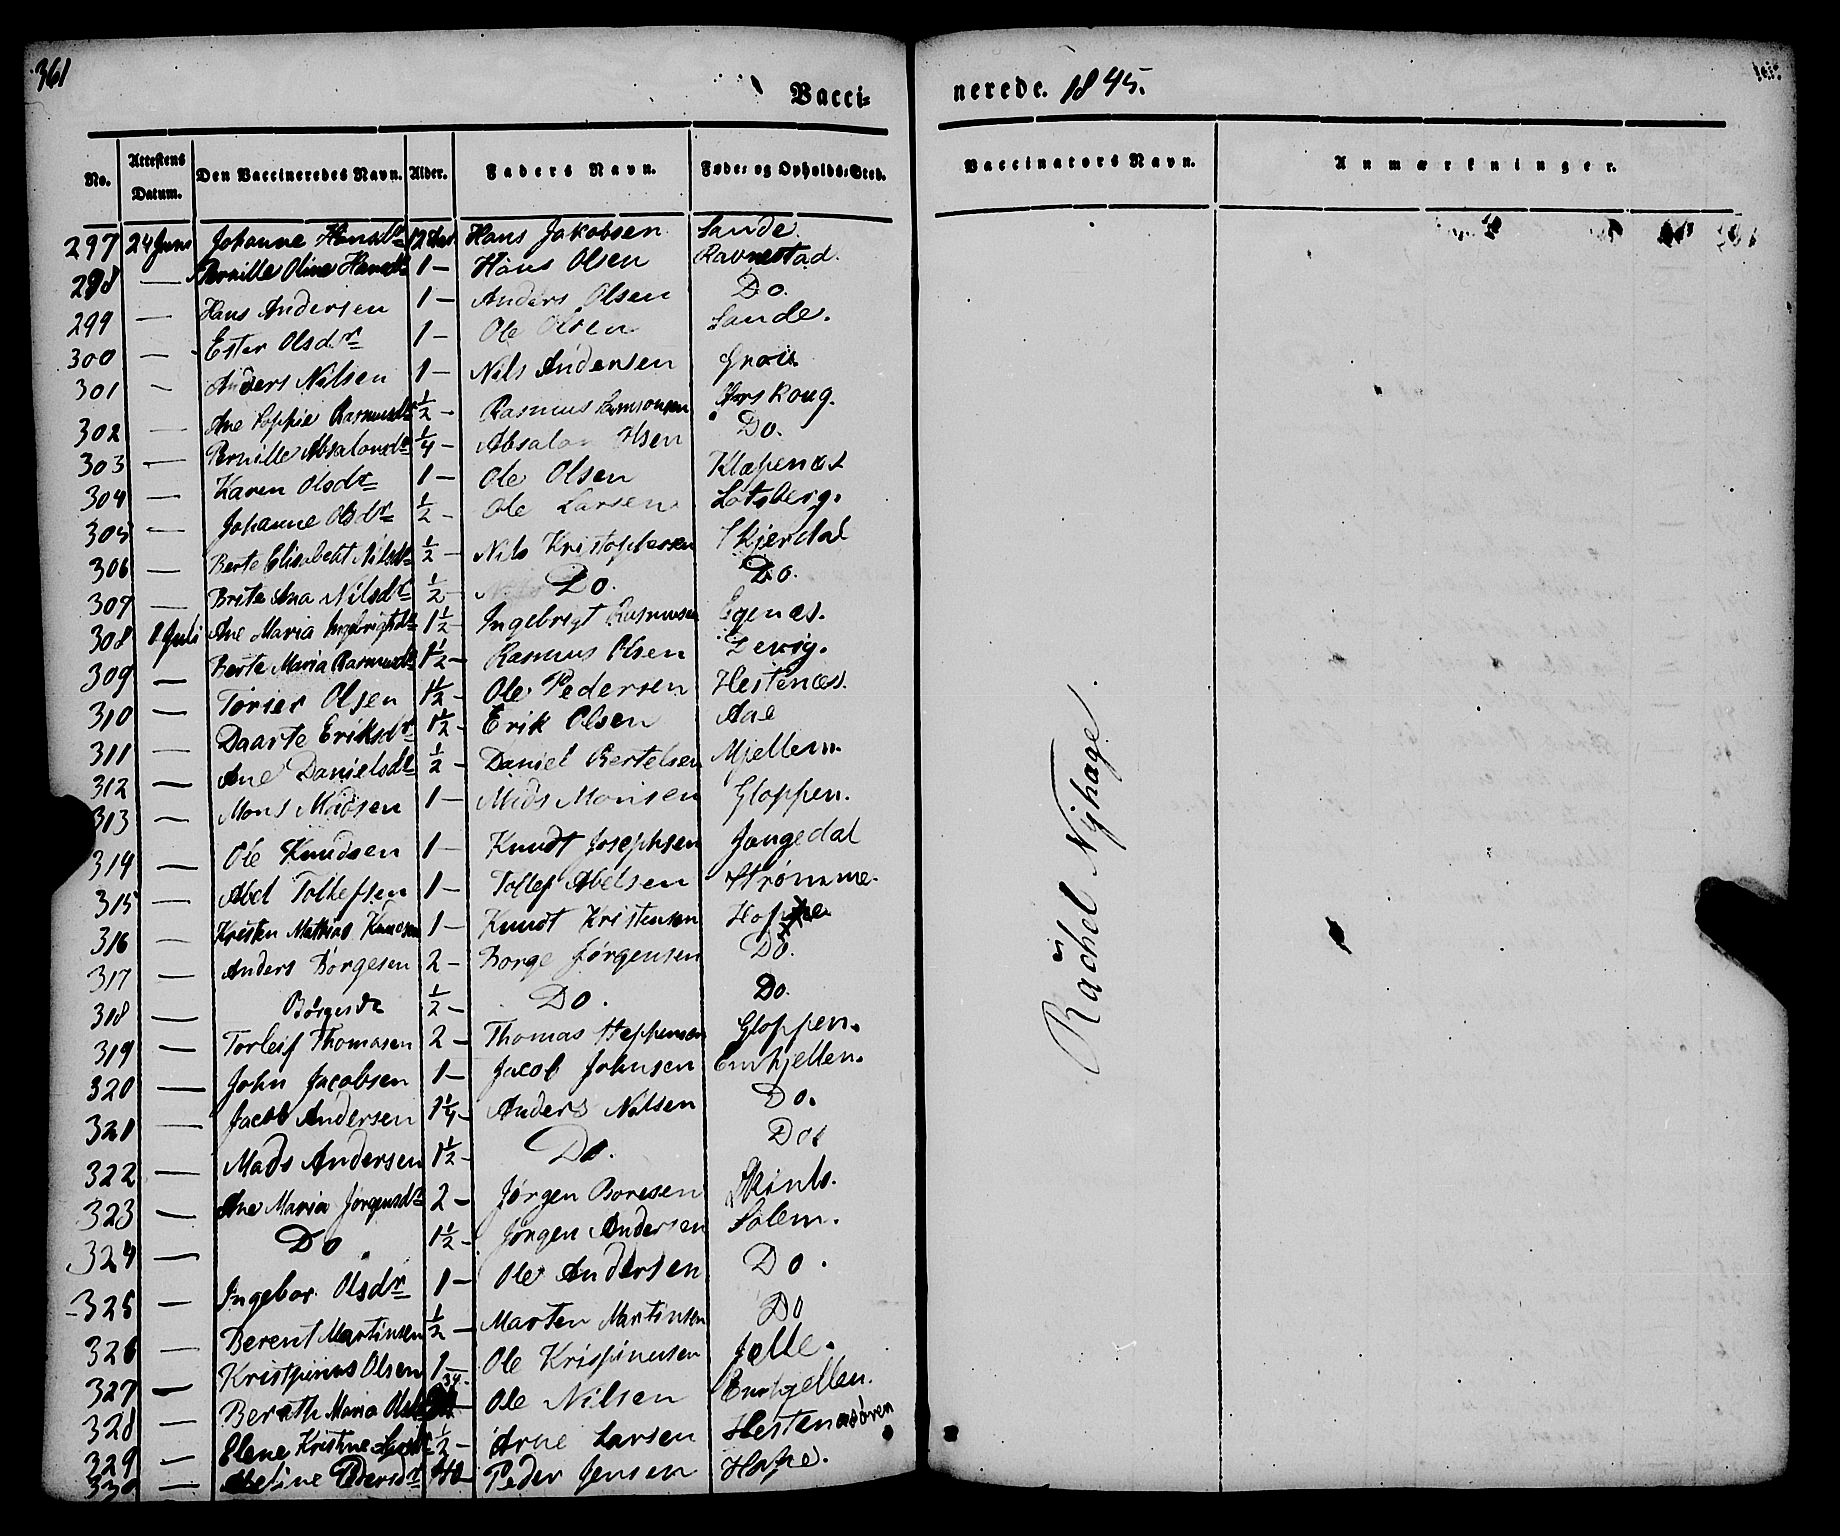 361
Vacci-
nerede. 1845.
No. Attestens Datum. Den Vaccineredes Navn. Alder. Faders Navn. Føde- og Opholds-Sted. Vaccinators Navn. Anmærkninger.
297 24 Juni Johanne Hansdr 12 Hans Jakobsen Sande.
298 — Pernille Oline Hansdr 1 — Hans Olsen Ravnestad.
299 — Hans Andersen 1 — Anders Olsen Do.
300 — Ester Olsdr 1 — Ole Olsen Sande.
301 — Anders Nilsen 1 — Nils Andersen
302 — Ane Sophie Rasmusdr ½ — Rasmus Samsonsen
303 — Pernille Absalonsdr ¼ — Absalon Olsen Do.
304 — Karen Olsdr 1 — Ole Olsen Klæpenæs
305 — Johanne Olsdr ½ — Ole Larsen Lotsberg.
306 — Berte Elisabeth Nilsdr ½ — Nils Kristophersen Skjerdal
307 — Brite Ana Nilsdr ½ — Do. Do.
308 1 Juli Ane Maria Ingebrigtsdr 1½ — Ingebrigt Rasmusen Egenæs.
309 — Berte Maria Rasmusdr 1½ — Rasmus Olsen
310 — Torier Olsen 1½ — Ole Pedersen Hestenæs.
311 — Daarte Eriksdr 1½ — Erik Olsen Aae
312 — Ane Danielsdr ½ — Daniel Bertelsen Mjellem.
313 — Mons Madsen 1 — Mads Monsen Gloppen.
314 — Ole Knudsen 1 — Knudt Josephsen Jangedal
315 — Abel Tollefsen 1 — Tollef Abelsen Strømme.
316 — Kristen Mathias Knudsen 1 — Knudt Kristensen
317 — Anders Børgesen 2 — Børge Jørgensen Do.
318 — Børgesdr ½ — Do. Do.
319 — Torleif Thomasen 2 — Thomas Steffensen Gloppen.
320 — John Jacobsen 1 — Jacob Johnsen Emhjellen.
321 — Jacob Andersen 1¼ — Anders Nilsen Do.
322 — Mads Andersen 1½ — Do. Do
323 — Ane Maria Jørgensdr 2 — Jørgen Boresen
324 — Do. 1½ — Jørgen Andersen Solem.
325 — Ingebor Olsdr 1 — Ole Andersen Do.
326 — Berent Martinsen ½ — Marten Martinsen Do
327 — Kristpinus Olsen 1 — Ole Krispinusen Jelle.
328 — Berath Maria 34. Ole Nilsen Emhjellen.
329 — Elene Kristine ½ — Arne Larsen Hestenæsøren
330 — Abeline Pedersdr Peder Jensen Hope.
Rachel Nyhage.